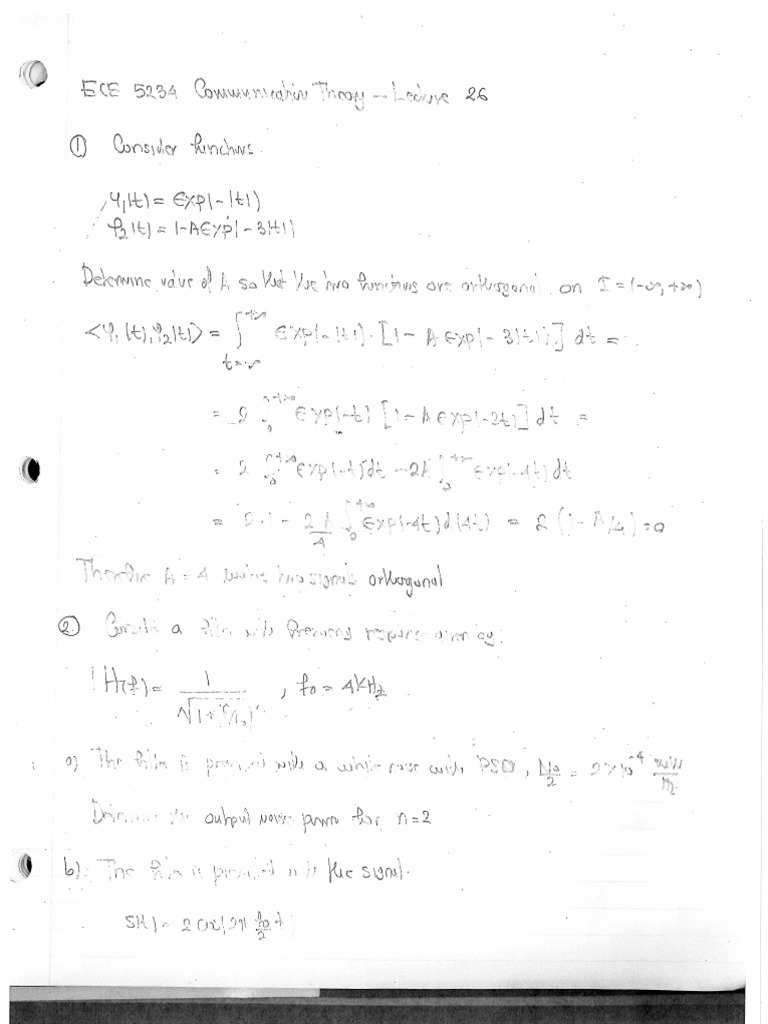 ECE 5234 Communication Theory – Lecture 26
① Consider functions.
φ₁(t) = exp(-|t|)
φ₂(t) = 1-A exp(-3|t|)
Determine value of A so that the two functions are orthogonal on I = (-∞, +∞)
<φ₁(t), φ₂(t)> = ∫ t=-∞ +∞ exp(-|t|)·[1- A exp(-3|t|)] dt =
= 2 ∫₀^{+∞} exp(-t) [1-A exp(-3t)] dt =
= 2 ∫₀^{+∞} exp(-t) dt - 2A ∫₀^{+∞} exp(-4t) dt
= 2·1 - 2A/4 ∫₀^{+∞} exp(-4t) d(4t) = 2 (1-A/4) = 0
Therefore A = 4 two signals orthogonal
②. Consider a filter with frequency response given by:
|H(f)| = 1/√1+(f/f₀) , f₀ = 4 kHz
a) The filter is provided with a white noise with PSD, N₀/2 = 2×10⁻⁴ /Hz
Determine the output noise power for n=2
b). The filter is provided with the signal.
s(t) = 2 cos(2π f₀/2 t